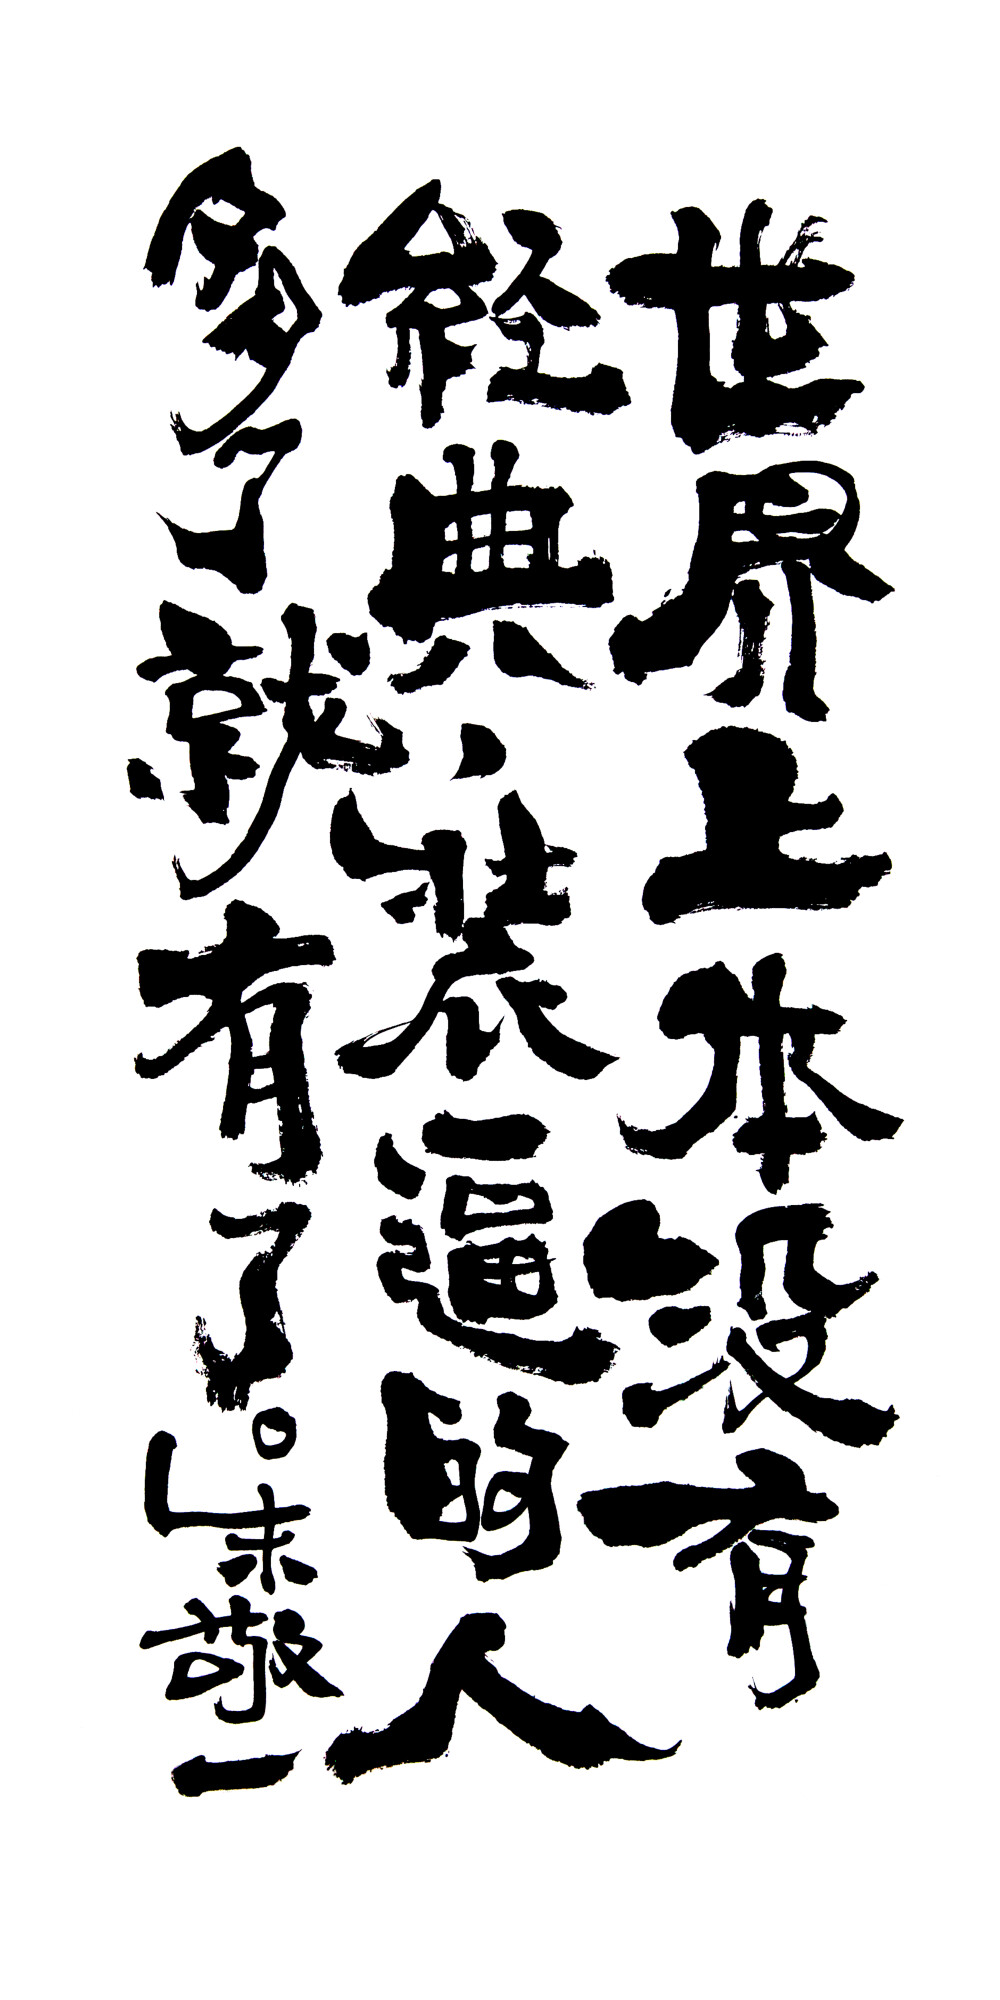 世界上本没有
经典，装逼的人
多了就有了。朱敬一